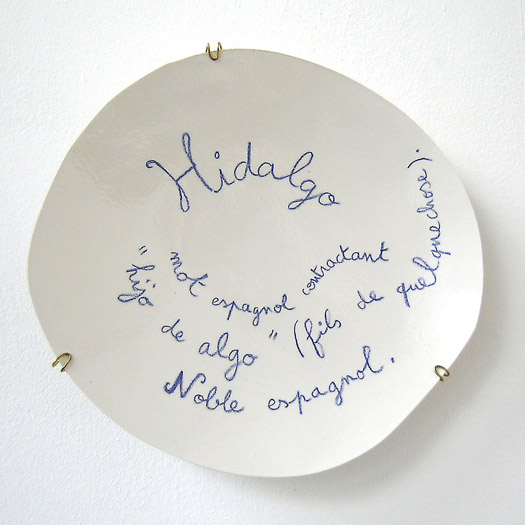 Hidalgo
mot espagnol contractant
"hijo de algo" (fils de quelquechose).
Noble espagnol.